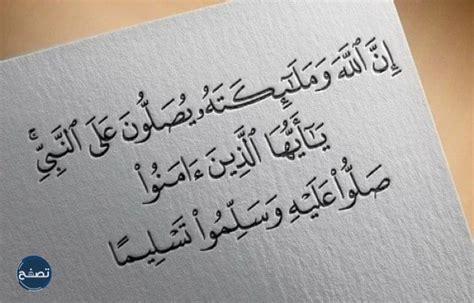 إِنَّ ٱللَّهَ وَمَلَٰٓئِكَتَهُۥ يُصَلُّونَ عَلَى ٱلنَّبِيِّۚ
يَٰٓأَيُّهَا ٱلَّذِينَ ءَامَنُواْ
صَلُّواْ عَلَيْهِ وَسَلِّمُواْ تَسْلِيمًا
تصفح